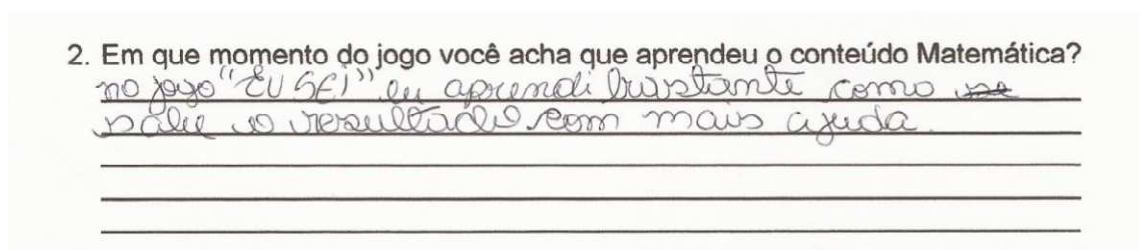 2. Em que momento do jogo você acha que aprendeu o conteúdo Matemática?
no jogo "EU SEI" eu aprendi bastante como
o resultado com mais ajuda.